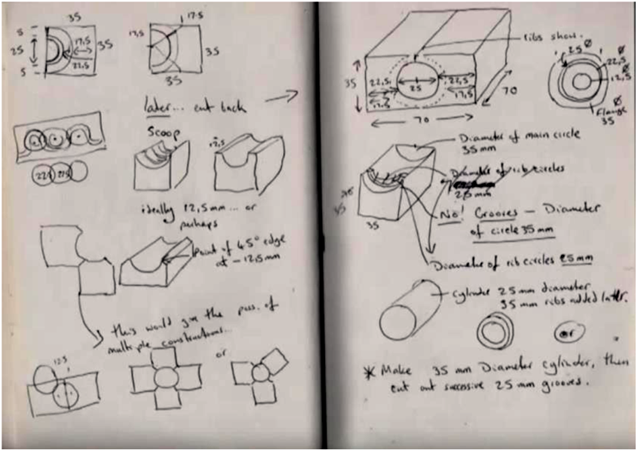 35
5
25
5
17,5
35
22,5
17,5
17,5
35
35
Later... cut back
Scoop
ideally 12,5mm... or
perhaps
Point of 45° edge
at - 12.5mm
this would give the poss. of
multiple constructions..
12.5
or
ribs show.
35
22,5
25
22,5
17,5
70
70
25 Ø
22,5 Ø
12,5 Ø
flange
35
Diameter of main circle
35mm
Diameter of rib circles
25mm
No! Grooves - Diameter
of circle 35mm
35
Diameter of rib circles 25mm
Cylinder 25mm diameter
35mm ribs added later.
or
* Make 35mm Diameter cylinder, then
cut out successive 25mm grooves.